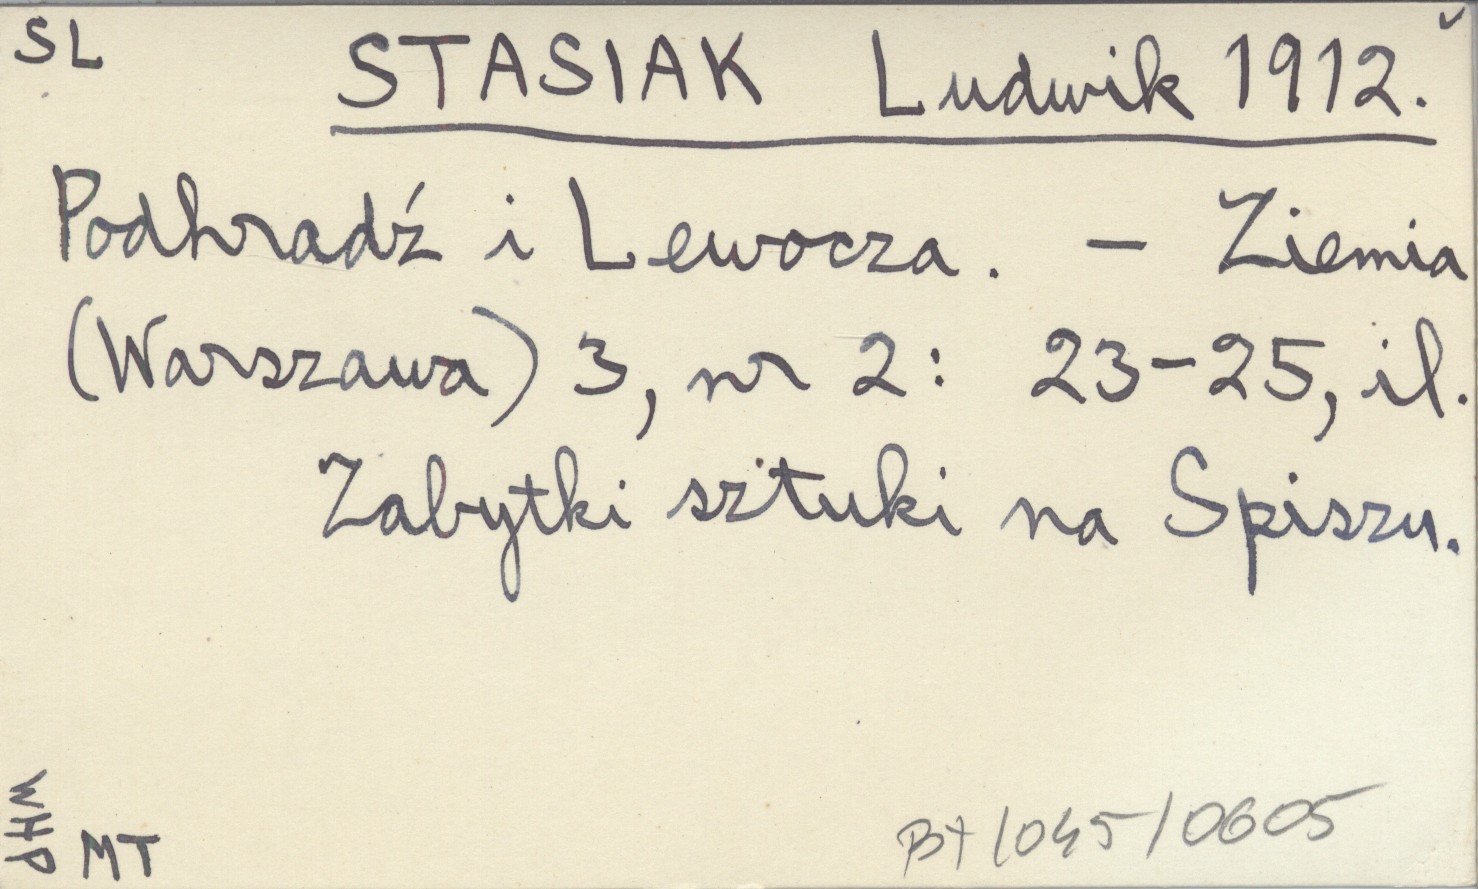 SL
STASIAK Ludwik 1912.
Podhradź i Lewocza. — Ziemia
(Warszawa) 3, nr 2: 23-25, il.
Zabytki sztuki na Spiszu.
WHP
MT
BT/045/0605